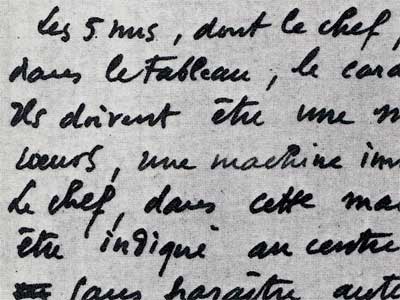 Les 5 nus, dont le chef,
dans le Tableau, le
Ils doivent être une
cœurs, une machine
Le chef, dans cette
être indiqué au centre
sans paraître